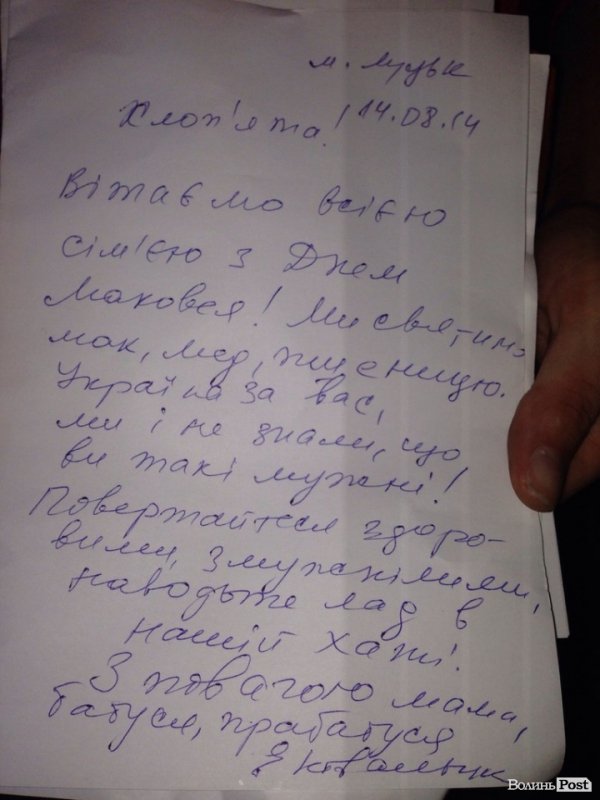 м. Луцьк
14.08.14
Хлоп'ята!
Вітаємо всією
сім'єю з Днем
Маковея! Ми святимо
мак, мед, пшеницю.
Україна за вас,
ми і не знали, що
ви такі мужні!
Повертайтеся здоро-
вими, змужнілими,
наводьте лад в
нашій хаті.
З повагою мама,
бабуся, прабабуся
Волинь Post